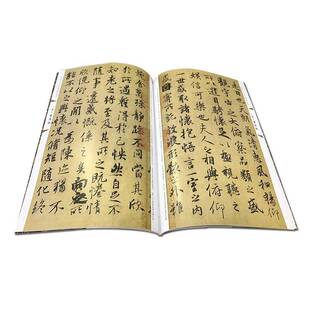 是日也天朗氣清惠風和暢仰
觀宇宙之大俯察品類之盛
所以遊目騁懷足以極視聽之
娛信可樂也夫人之相與俯仰
一世或取諸懷抱悟言一室之內
或因寄所託放浪形骸之外雖
趣舍萬殊靜躁不同當其欣
於所遇蹔得於己快然自足不
知老之將至及其所之既倦情
隨事遷感慨係之矣向之所
欣俛仰之間以為陳迹猶不
能不以之興懷況脩短隨化終